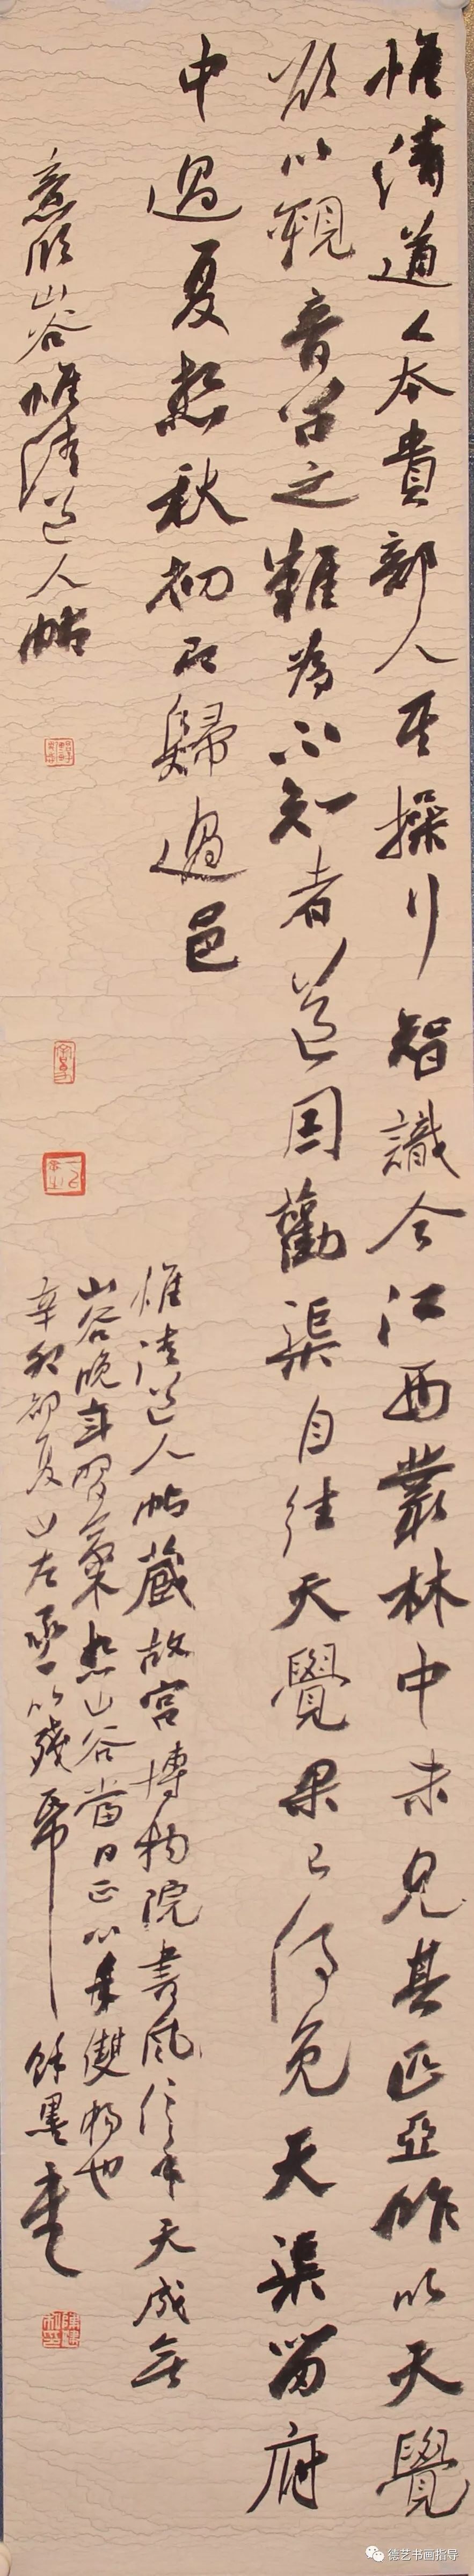 惟清道人本貴部人其操行智識今江西叢林中未見其匹亞昨以天覺
欲以觀音召之難為不知者道因勸渠自往天覺果已得免天渠留府
中過夏想秋初即歸過邑
意臨山谷惟清道人帖
惟清道人帖藏故宮博物院書風信手天成無
山谷晚年習氣想山谷當日正以未雙物也
辛卯初夏山左丞以殘帋餘墨書
德艺书画指导